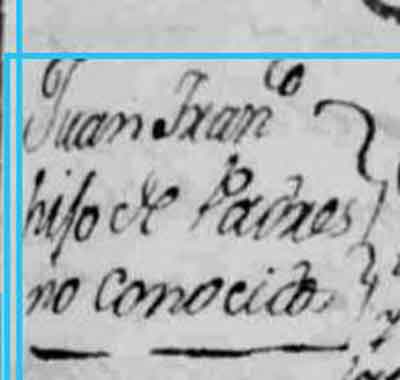 Juan Fran.co
hijo de Padres
no conocidos